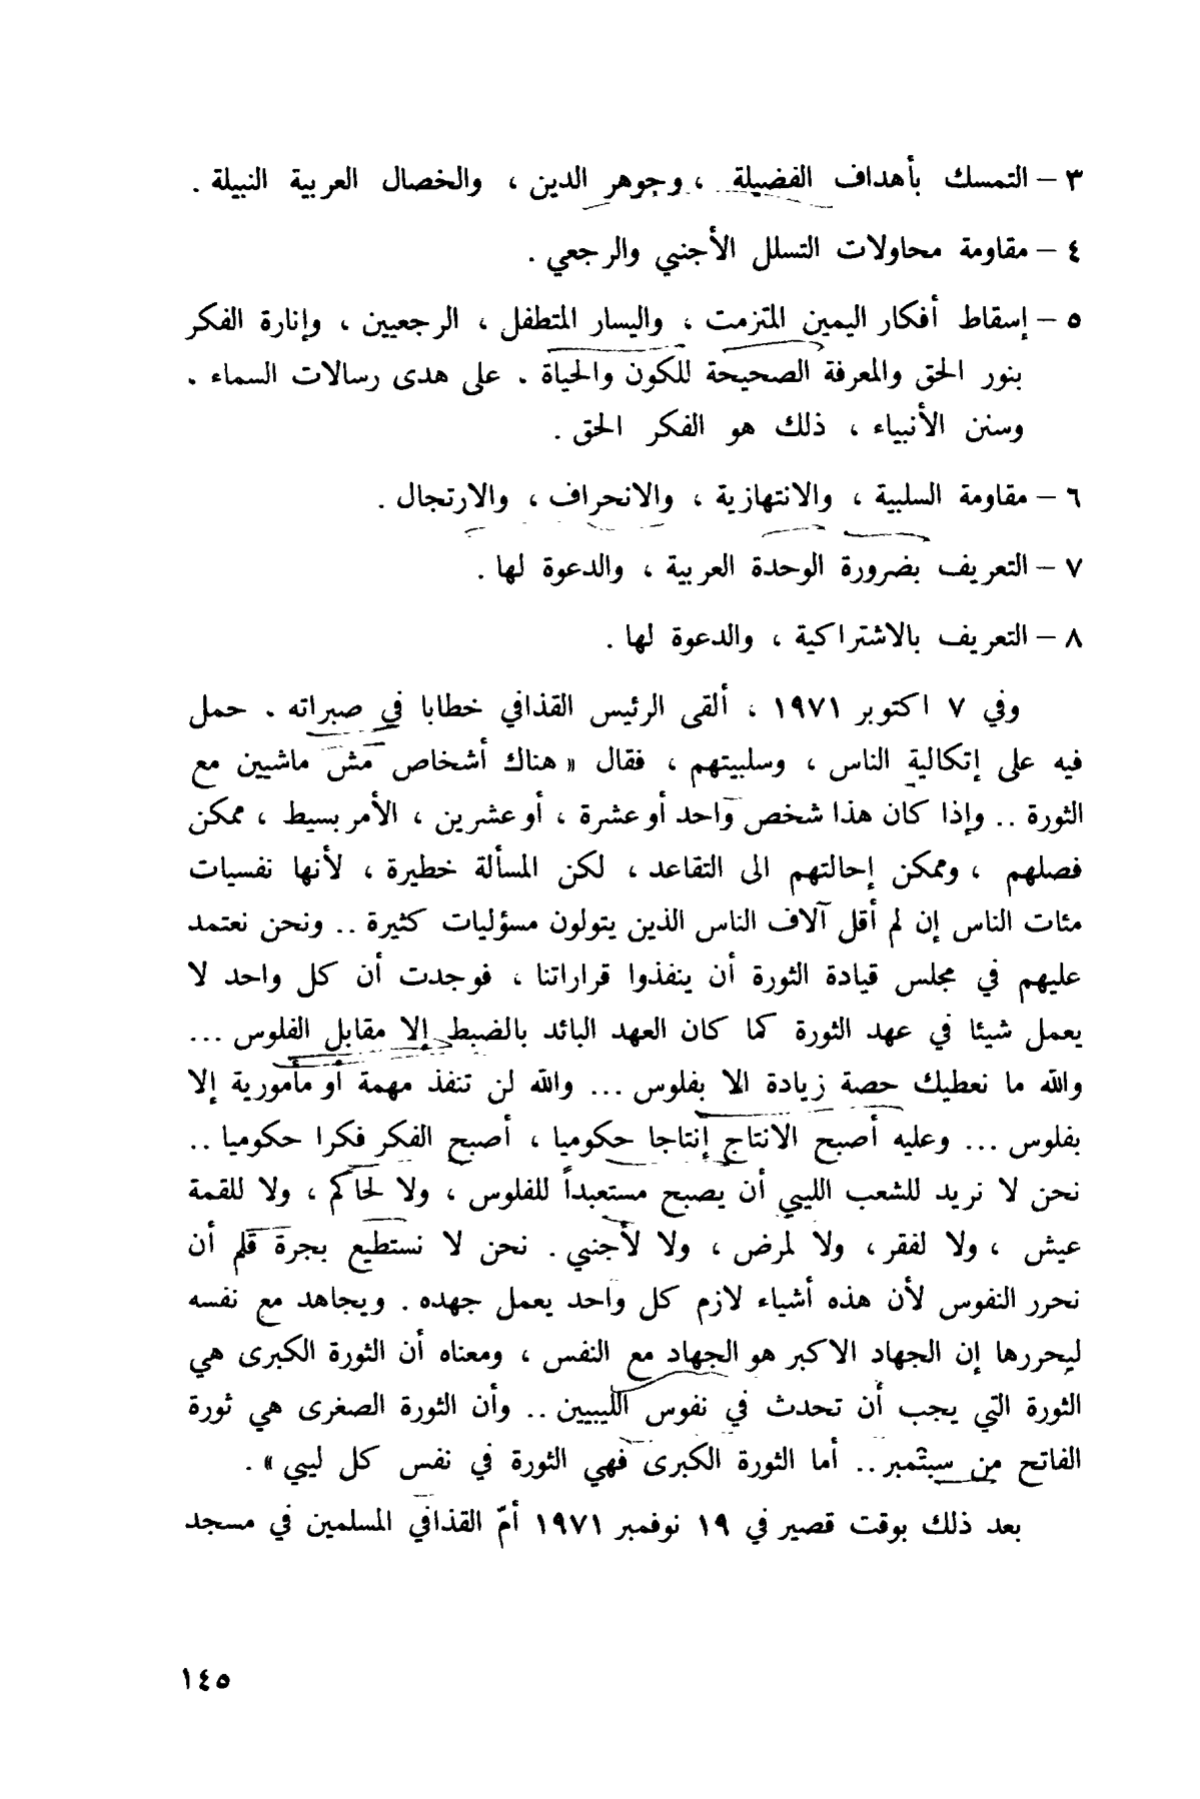 ٣ – التمسك بأهداف الفضيلة ، وجوهر الدين ، والخصال العربية النبيلة .
٤ – مقاومة محاولات التسلل الأجنبي والرجعي .
٥ – إسقاط أفكار اليمين المتزمت ، واليسار المتطفل ، الرجعيين ، وإنارة الفكر
بنور الحق والمعرفة الصحيحة للكون والحياة . على هدى رسالات السماء .
وسنن الأنبياء ، ذلك هو الفكر الحق .
٦ – مقاومة السلبية ، والانتهازية ، والانحراف ، والارتجال .
٧ – التعريف بضرورة الوحدة العربية ، والدعوة لها .
٨ – التعريف بالاشتراكية ، والدعوة لها .
وفي ٧ اكتوبر ١٩٧١ ، ألقى الرئيس القذافي خطابا في صبراته . حمل
فيه على إتكالية الناس ، وسلبيتهم ، فقال « هناك أشخاص مش ماشيين مع
الثورة .. وإذا كان هذا شخص واحد أو عشرة ، أو عشرين ، الأمر بسيط ، ممكن
فصلهم ، وممكن إحالتهم الى التقاعد ، لكن المسألة خطيرة ، لأنها نفسيات
مئات الناس إن لم أقل آلاف الناس الذين يتولون مسؤليات كثيرة .. ونحن نعتمد
عليهم في مجلس قيادة الثورة أن ينفذوا قراراتنا ، فوجدت أن كل واحد لا
يعمل شيئا في عهد الثورة كما كان العهد البائد بالضبط إلا مقابل الفلوس ...
والله ما نعطيك حصة زيادة الا بفلوس ... والله لن تنفذ مهمة أو مأمورية إلا
بفلوس ... وعليه أصبح الانتاج إنتاجا حكوميا ، أصبح الفكر فكرا حكوميا ..
نحن لا نريد للشعب الليبي أن يصبح مستعبداً للفلوس ، ولا لحاكم ، ولا للقمة
عيش ، ولا لفقر ، ولا لمرض ، ولا لأجنبي . نحن لا نستطيع بجرة قلم أن
نحرر النفوس لأن هذه أشياء لازم كل واحد يعمل جهده . ويجاهد مع نفسه
ليحررها إن الجهاد الاكبر هو الجهاد مع النفس ، ومعناه أن الثورة الكبرى هي
الثورة التي يجب أن تحدث في نفوس الليبيين .. وأن الثورة الصغرى هي ثورة
الفاتح من سبتمبر .. أما الثورة الكبرى فهي الثورة في نفس كل ليبي » .
بعد ذلك بوقت قصير في ١٩ نوفمبر ١٩٧١ أمّ القذافي المسلمين في مسجد
١٤٥